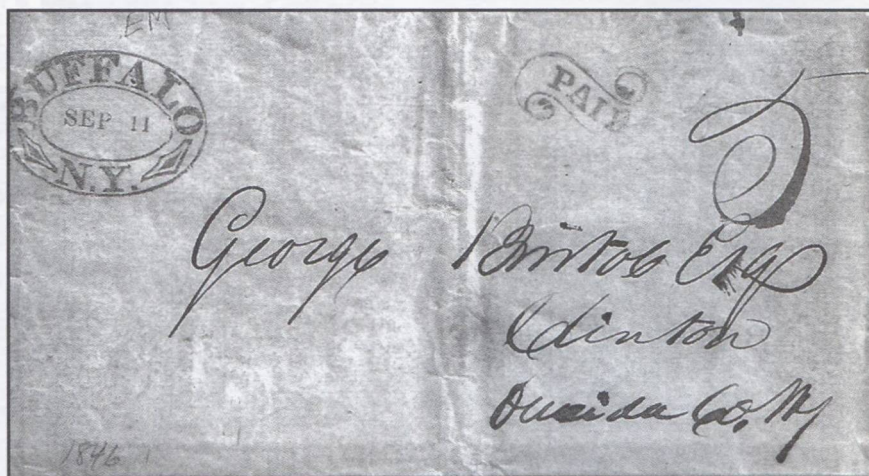 EM
BUFFALO
SEP 11
N.Y.
PAID
5
George Bristol Esq
Clinton
Oneida Co. NY
1846